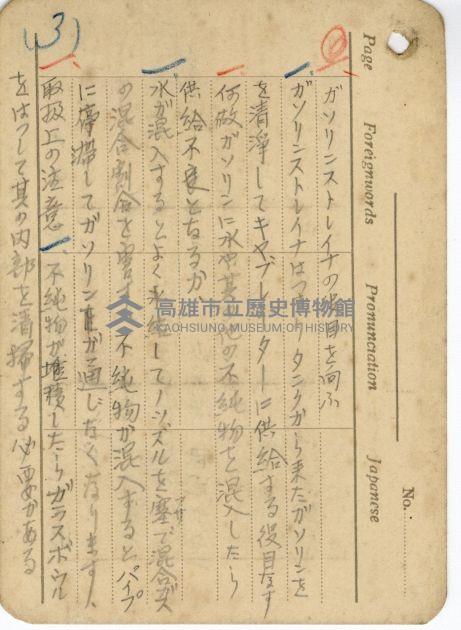 No.
Page Foreignwords Pronunciation Japanese
ガソリンストレイナの役目を問ふ
一、ガソリンストレイナはつまりタンクから来たガソリンを
を清浄してキヤブレーターに供給する役目をす
一、何故ガソリンに水や其の他の不純物を混入したら
供給不良となるか、
一、水が混入するとよく氷結してノッズルを塞で混合ガス
の混合割合を害す 不純物が混入するとパイプ
に停滞してガソリンが通じなくなります、
(3) 一、取扱上の注意 一、不純物が堆積したらガラスボウル
をはづして其の内部を清掃する必要がある
高雄市立歷史博物館
KAOHSIUNG MUSEUM OF HISTORY